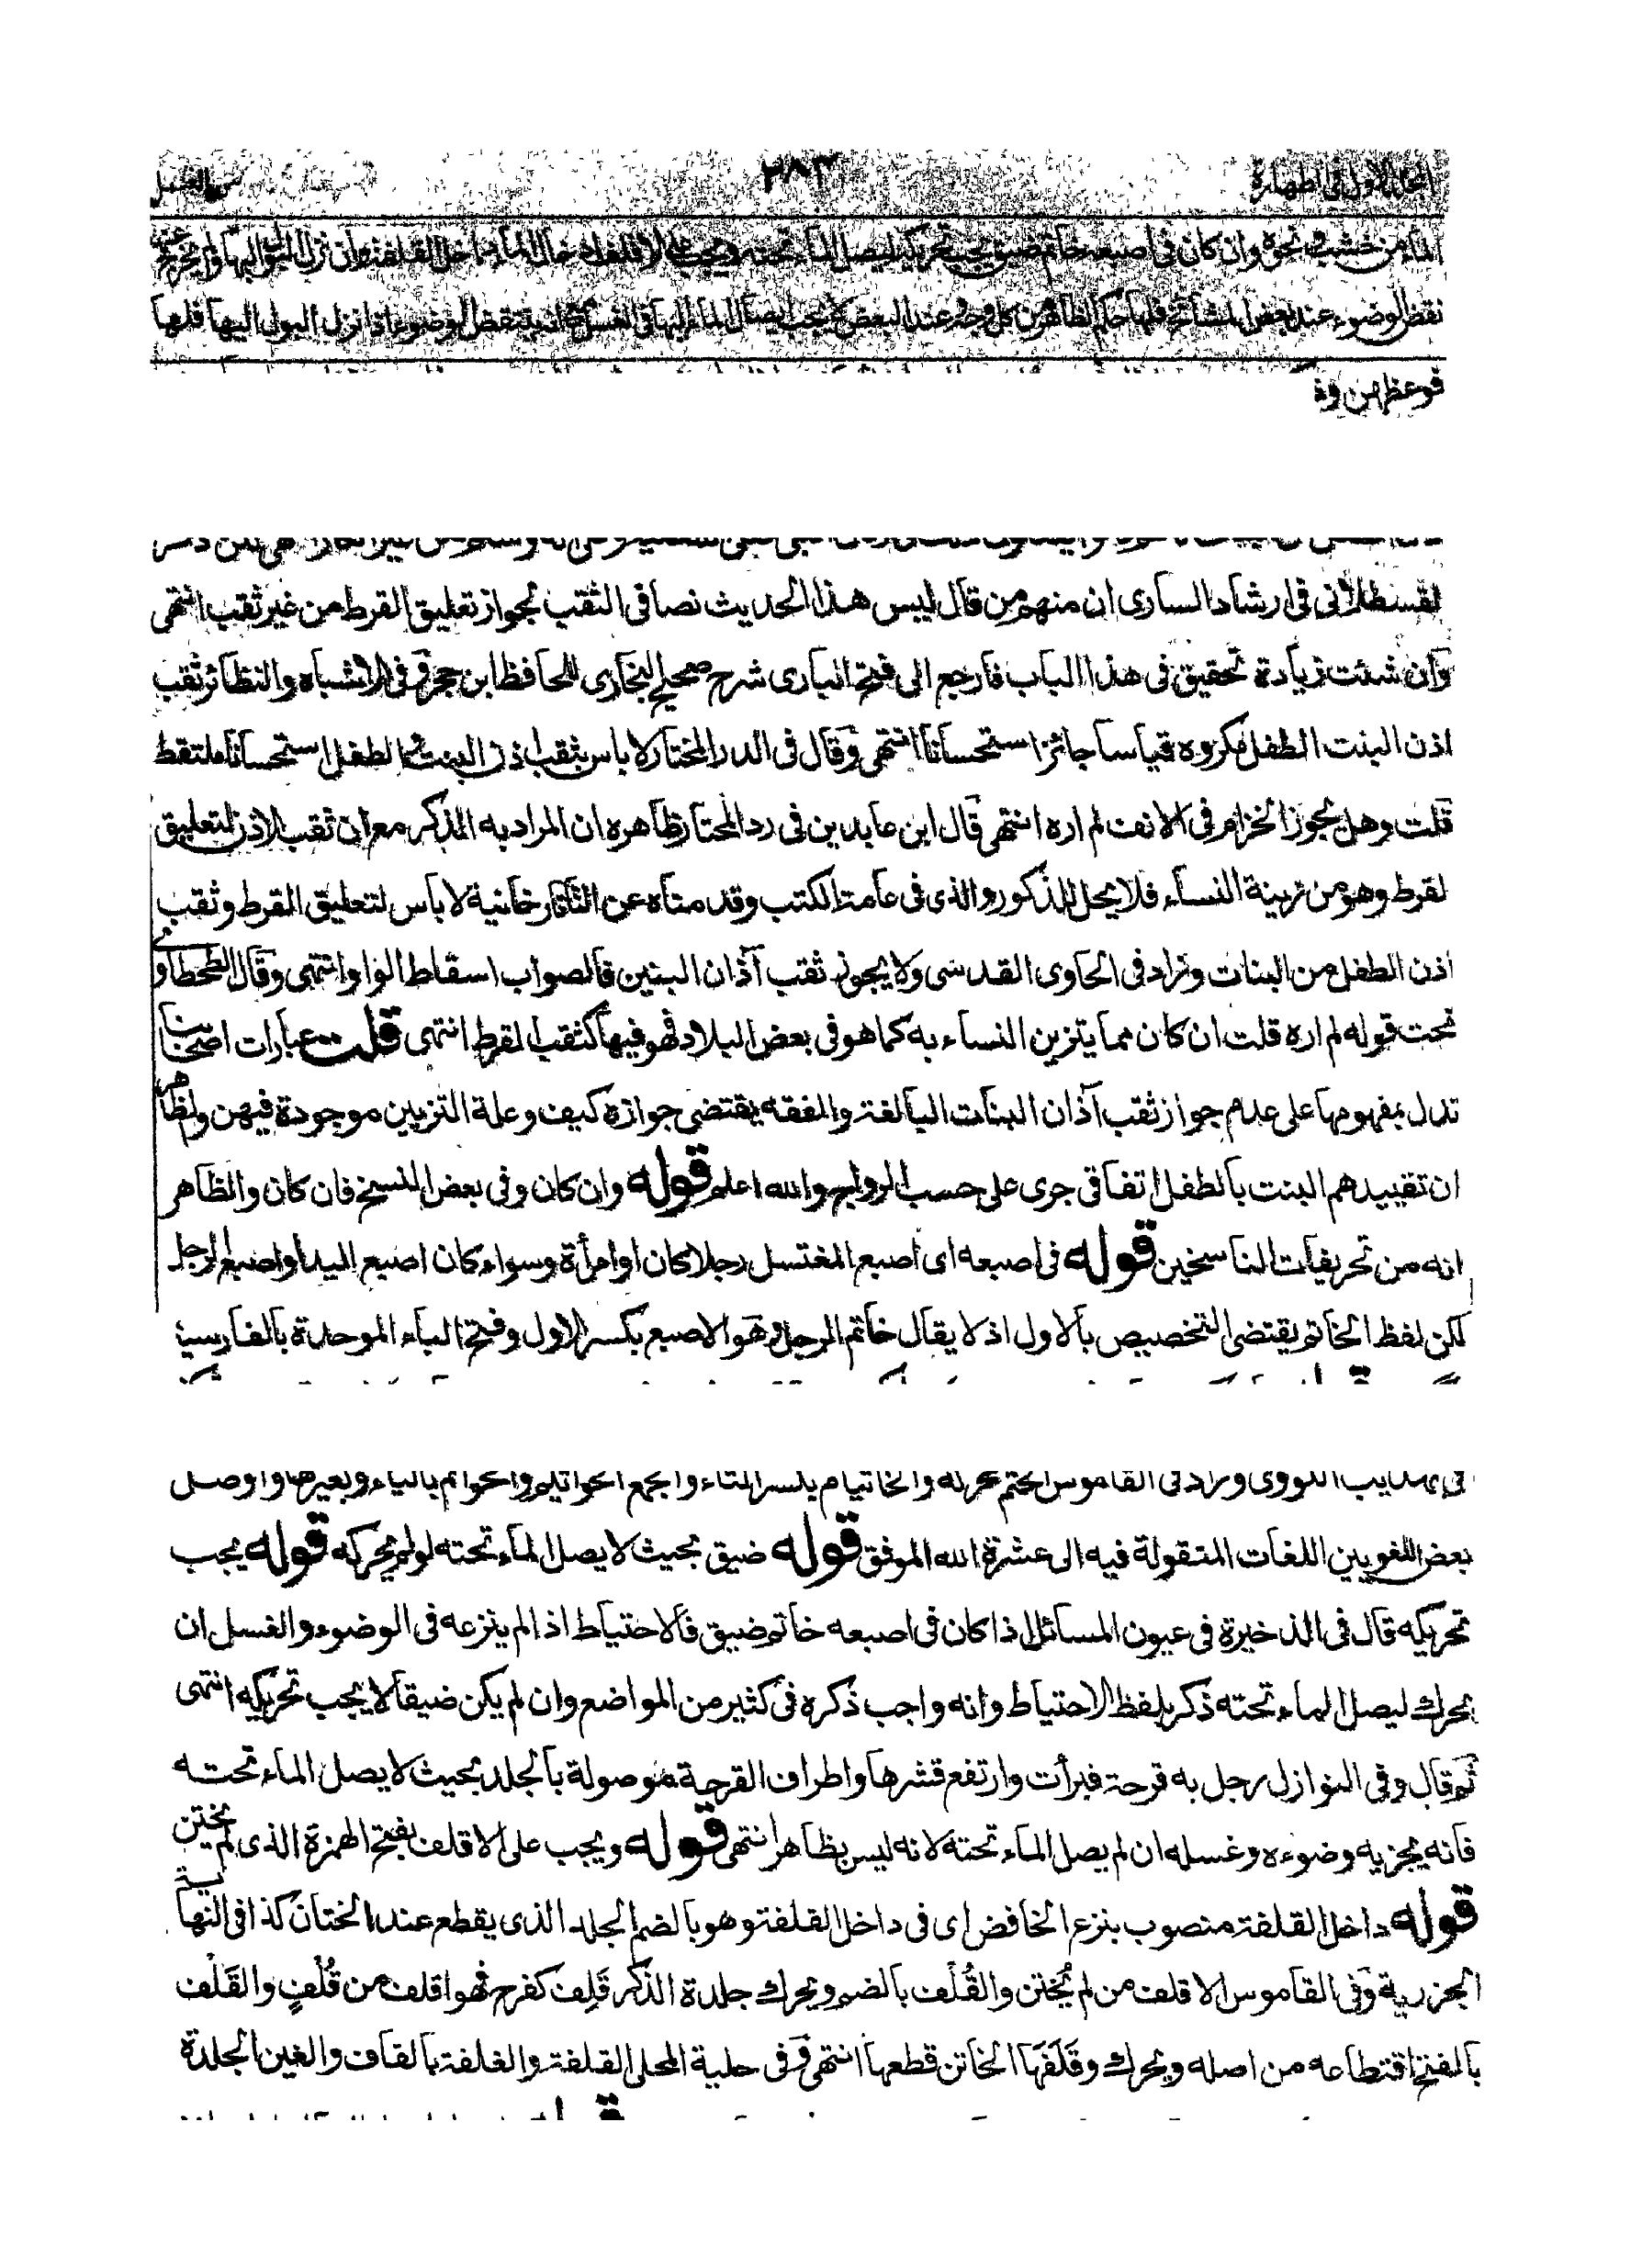 المجلد الاول فى الطهارة ٣٨٣
الماء من خشب ونحوه وان كان فى اصبعه خاتم ضيق يجب تحريكه ليصل الماء تحته ويجب على الاقلف ادخال الماء داخل القلفة وان نزل البول اليها ولم يخرج عنها
نقض الوضوء عند بعض المشائخ فلها حكم الظاهر من كل وجه وعند البعض لا يجب ايصال الماء اليها فى الغسل مع انه ينتقض الوضوء اذا نزل البول اليها فلها
فوعظهن
القسطلانى فى ارشاد السارى ان منهم من قال ليس هذا الحديث نصا فى الثقب لجواز تعليق القرط من غير ثقب انتهى
وان شئت زيادة تحقيق فى هذا الباب فارجع الى فتح البارى شرح صحيح البخارى للحافظ ابن حجر وفى الاشباه والنظائر ثقب
اذن البنت الطفل مكروه قياسا جائز استحسانا انتهى وقال فى الدر المختار لا باس بثقب اذن البنت والطفل استحسانا ملتقط
قلت وهل يجوز الخزام فى الانف لم اره انتهى قال ابن عابدين فى رد المحتار ظاهره ان المراد به الذكر مع ان ثقب الاذن لتعليق
لقرط وهو من زينة النساء فلا يحل للذكور والذى فى عامة الكتب وقد مناه عن التاتارخانية لا باس لتعليق القرط وثقب
اذن الطفل من البنات وزاد فى الحاوى القدسى ولا يجوز ثقب آذان البنين فالصواب اسقاط الواو انتهى وقال الطحطاوى
تحت قوله لم اره قلت ان كان مما يتزين النساء به كما هو فى بعض البلاد فهو فيها كثقب القرط انتهى قلت عبارات اصحابنا
تدل بمفهومها على عدم جواز ثقب آذان البنات البالغة والفقه يقتضى جوازه كيف وعلة التزيين موجودة فيهن ولظاهر
ان تقييدهم البنت بالطفل اتفاقى جرى على حسب الرواج والله اعلم قوله وان كان وفى بعض النسخ فان كان والظاهر
انه من تحريفات الناسخين قوله فى اصبعه اى اصبع المغتسل رجلا كان او امرأة وسواء كان اصبع اليد او اصبع الرجل
لكن لفظ الخاتم يقتضى التخصيص بالاول اذ لا يقال خاتم الرجل وهو الاصبع بكسر الاول وفتح الباء الموحدة بالفارسية
فى تهذيب النووى وزاد فى القاموس الختم محركه والخاتيام بكسر التاء والجمع الخواتيم والخواتم بالياء وبغيرها واوصل
بعض اللغويين اللغات المنقولة فيه الى عشرة الله الموفق قوله ضيق بحيث لا يصل الماء تحته لو لم يحركه قوله يجب
تحريكه قال فى الذخيرة فى عيون المسائل اذا كان فى اصبعه خاتم ضيق فالاحتياط اذا لم ينزعه فى الوضوء والغسل ان
يحرك ليصل الماء تحته ذكر بلفظ الاحتياط وانه واجب ذكره فى كثير من المواضع وان لم يكن ضيقا لا يجب تحريكه انتهى
ثم قال وفى النوازل رجل به قرحة فبرأت وارتفع قشرها واطراف القرحة موصولة بالجلد بحيث لا يصل الماء تحته
فانه يجزيه وضوءه وغسله ان لم يصل الماء تحته لانه ليس بظاهر انتهى قوله ويجب على الاقلف بفتح الهمزة الذى لم يختن
قوله داخل القلفة منصوب بنزع الخافض اى فى داخل القلفة وهو بالضم الجلد الذى يقطع عند الختان كذا فى النهاية
الجزرية وفى القاموس الاقلف من لم يُختن والقُلْف بالضم ويحرك جلدة الذكر قَلِف كفرح فهو اقلف من قُلْفٍ والقَلْف
بالفتح اقتطاعه من اصله ويحرك وقَلَفَهَا الخاتن قطعها انتهى وفى حلية المحلى القلفة والغلفة بالقاف والغين الجلدة